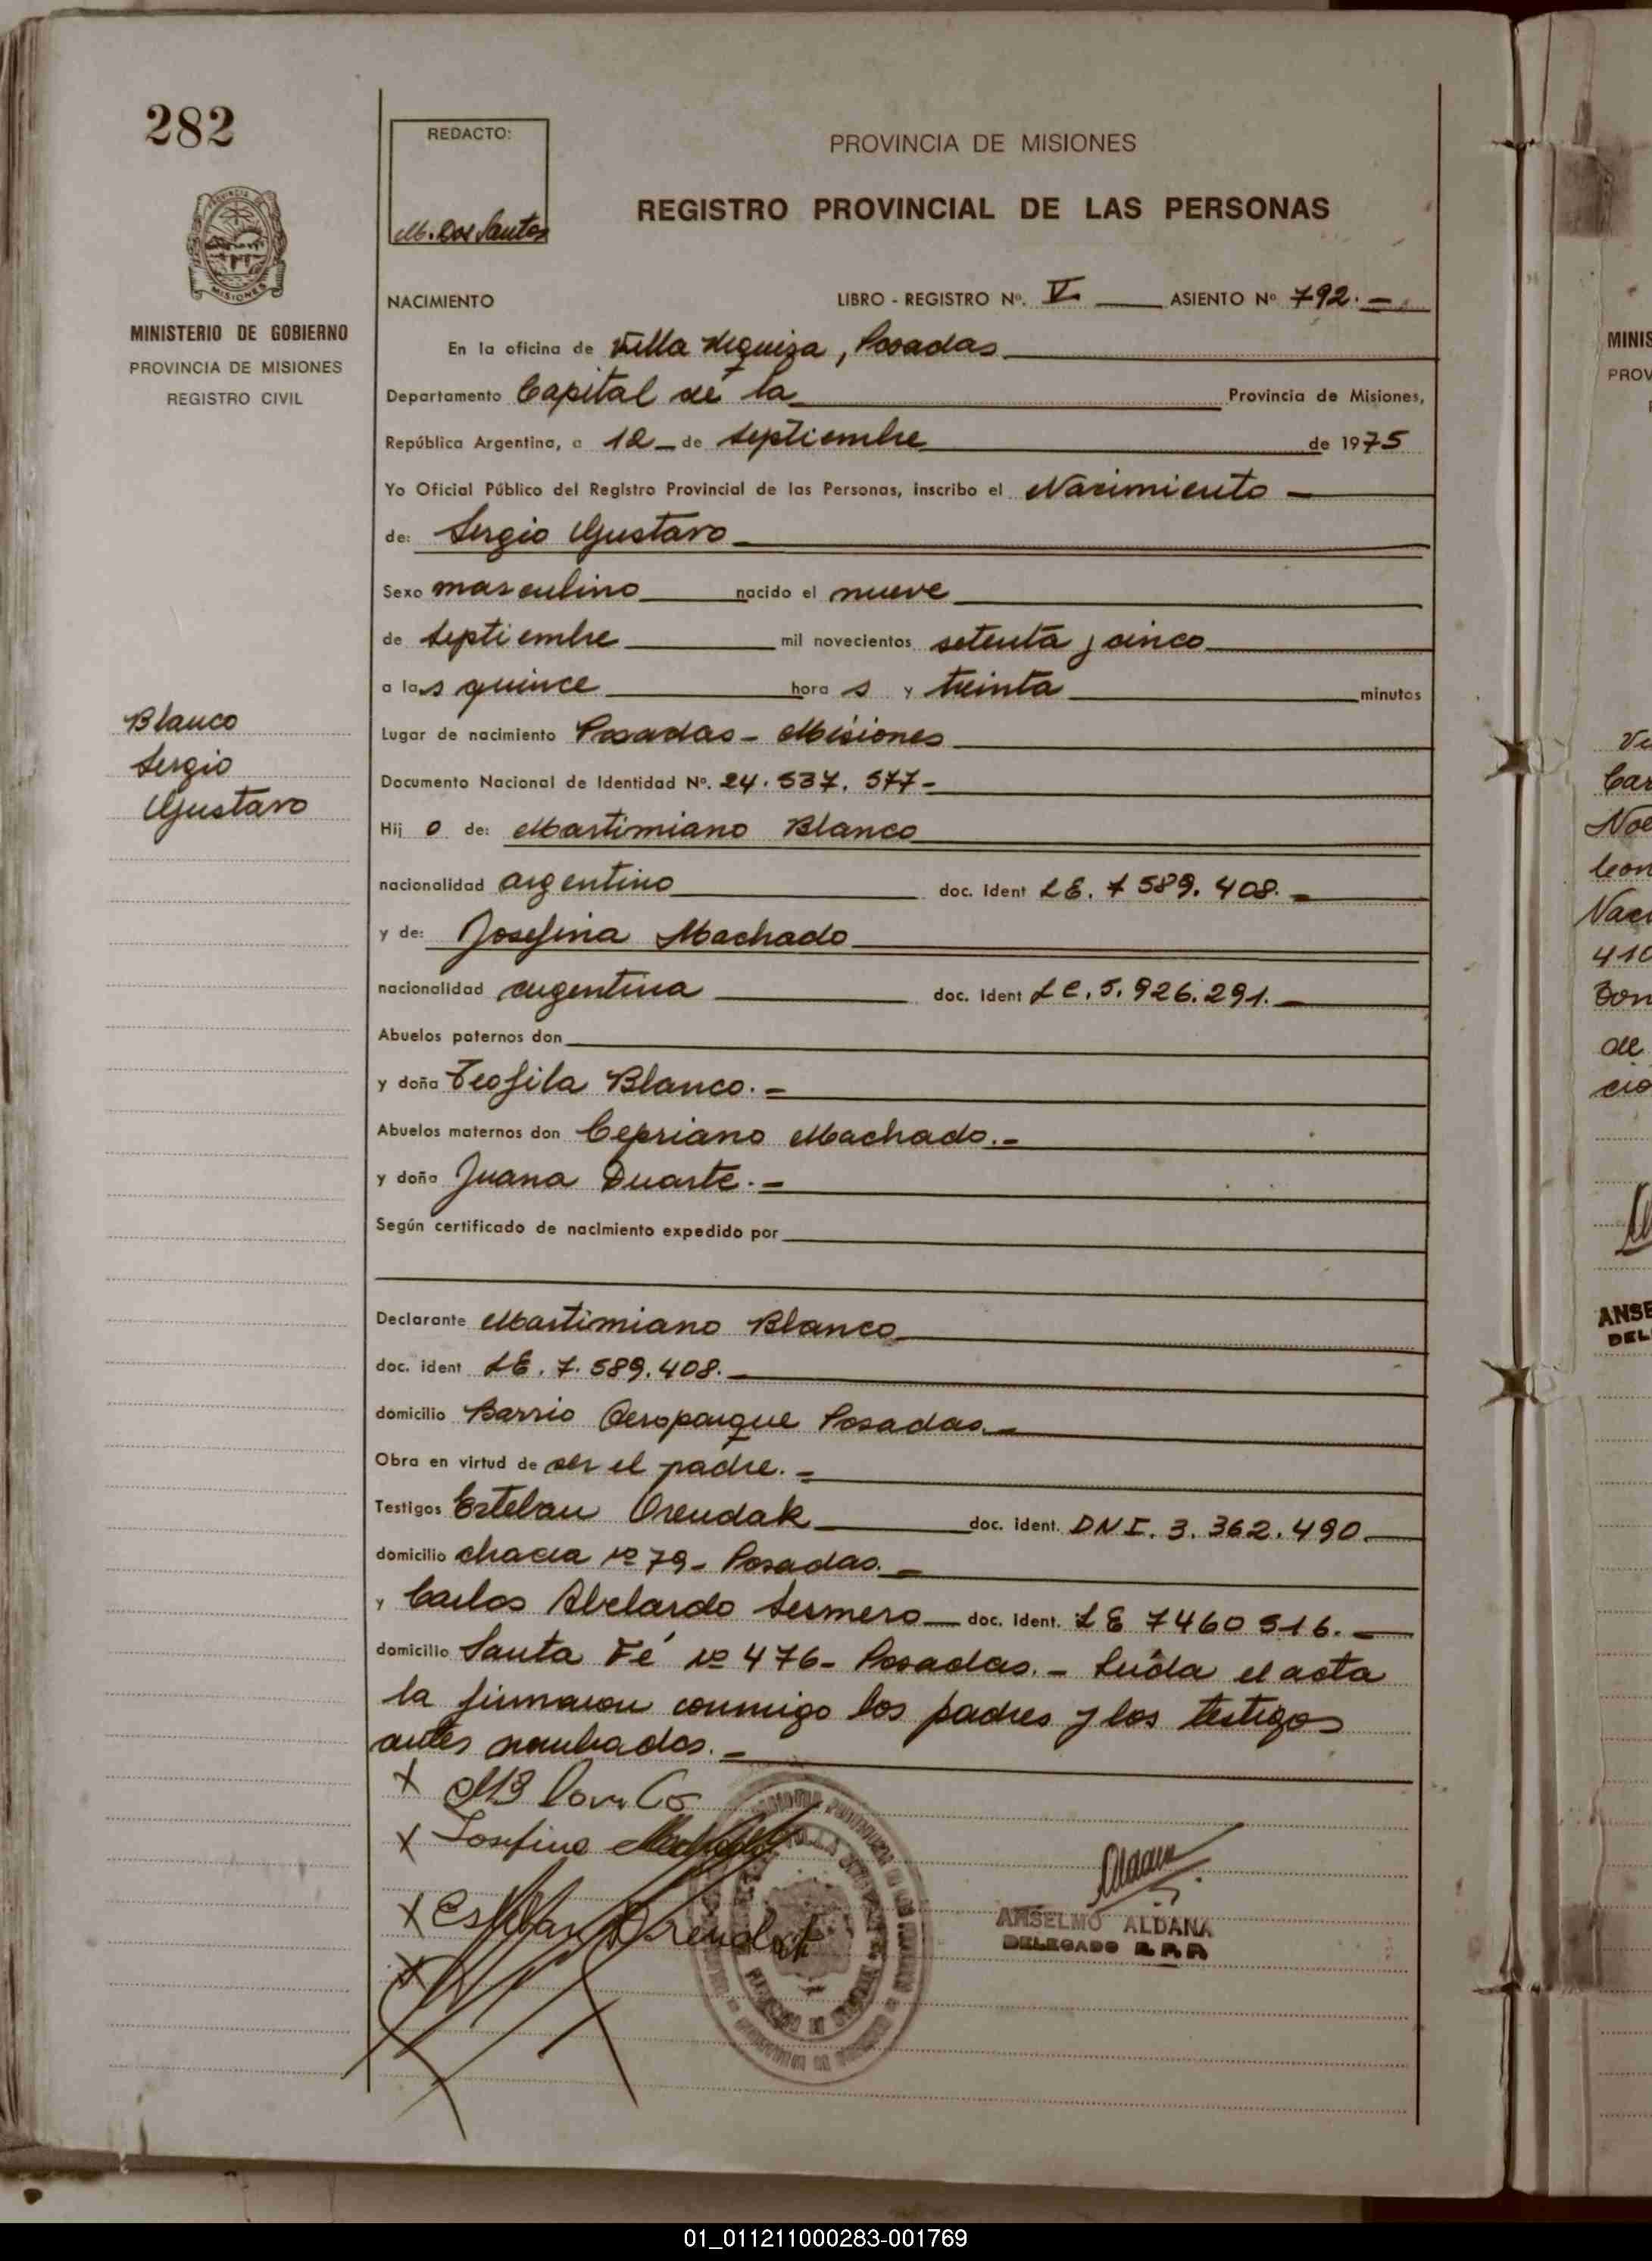 282
REDACTO:
M. Dos Santos
PROVINCIA DE MISIONES
REGISTRO PROVINCIAL DE LAS PERSONAS
MISIONES
MINISTERIO DE GOBIERNO
PROVINCIA DE MISIONES
REGISTRO CIVIL
NACIMIENTO LIBRO - REGISTRO Nº. V ASIENTO Nº 792.-
En la oficina de Villa Urquiza, Posadas
Departamento Capital de la Provincia de Misiones,
República Argentina, a 12 de Septiembre de 1975
Yo Oficial Público del Registro Provincial de las Personas, inscribo el Nacimiento -
de: Sergio Gustavo
Sexo masculino nacido el nueve
de Septiembre mil novecientos setenta y cinco
a las quince hora s y treinta minutos
Blanco
Sergio
Gustavo
Lugar de nacimiento Posadas - Misiones
Documento Nacional de Identidad Nº. 24.537.577-
Hij o de: Martimiano Blanco
nacionalidad argentino doc. Ident LE. 7589.408.-
y de: Josefina Machado
nacionalidad argentina doc. Ident LC. 5.926.291.-
Abuelos paternos don
y doña Teofila Blanco.-
Abuelos maternos don Cepriano Machado.-
y doña Juana Duarte.-
Según certificado de nacimiento expedido por
Declarante Martimiano Blanco
doc. ident LE. 7.589.408.-
domicilio Barrio Aeroparque Posadas.-
Obra en virtud de ser el padre.-
Testigos Esteban Orendak doc. ident. DNI. 3.362.490.
domicilio chacra nº 79- Posadas.-
y Carlos Abelardo Sermero doc. ident. LE 7460516.-
domicilio Santa Fé nº 476- Posadas.- Leída el acta
la firmaron conmigo los padres y los testigos
antes nombrados.-
x M Blanco
x Josefina Machado
x Esteban Orendak
x
Aldana
ANSELMO ALDANA
DELEGADO R.P.P.
MINIS
PROV
Car
Noe
Leon
Naci
410
de
cio
ANSE
DEL
01_011211000283-001769